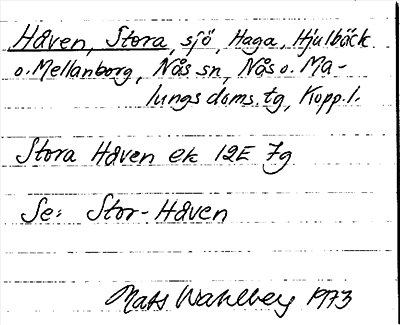 Håven, Stora, sjö, Haga, Hjulbäck
o. Mellanborg, Nås sn, Nås o. Ma-
lungs doms. tg, Kopp. l.
Stora Håven ek 12E 7g
Se: Stor-Håven
Mats Wahlberg 1973